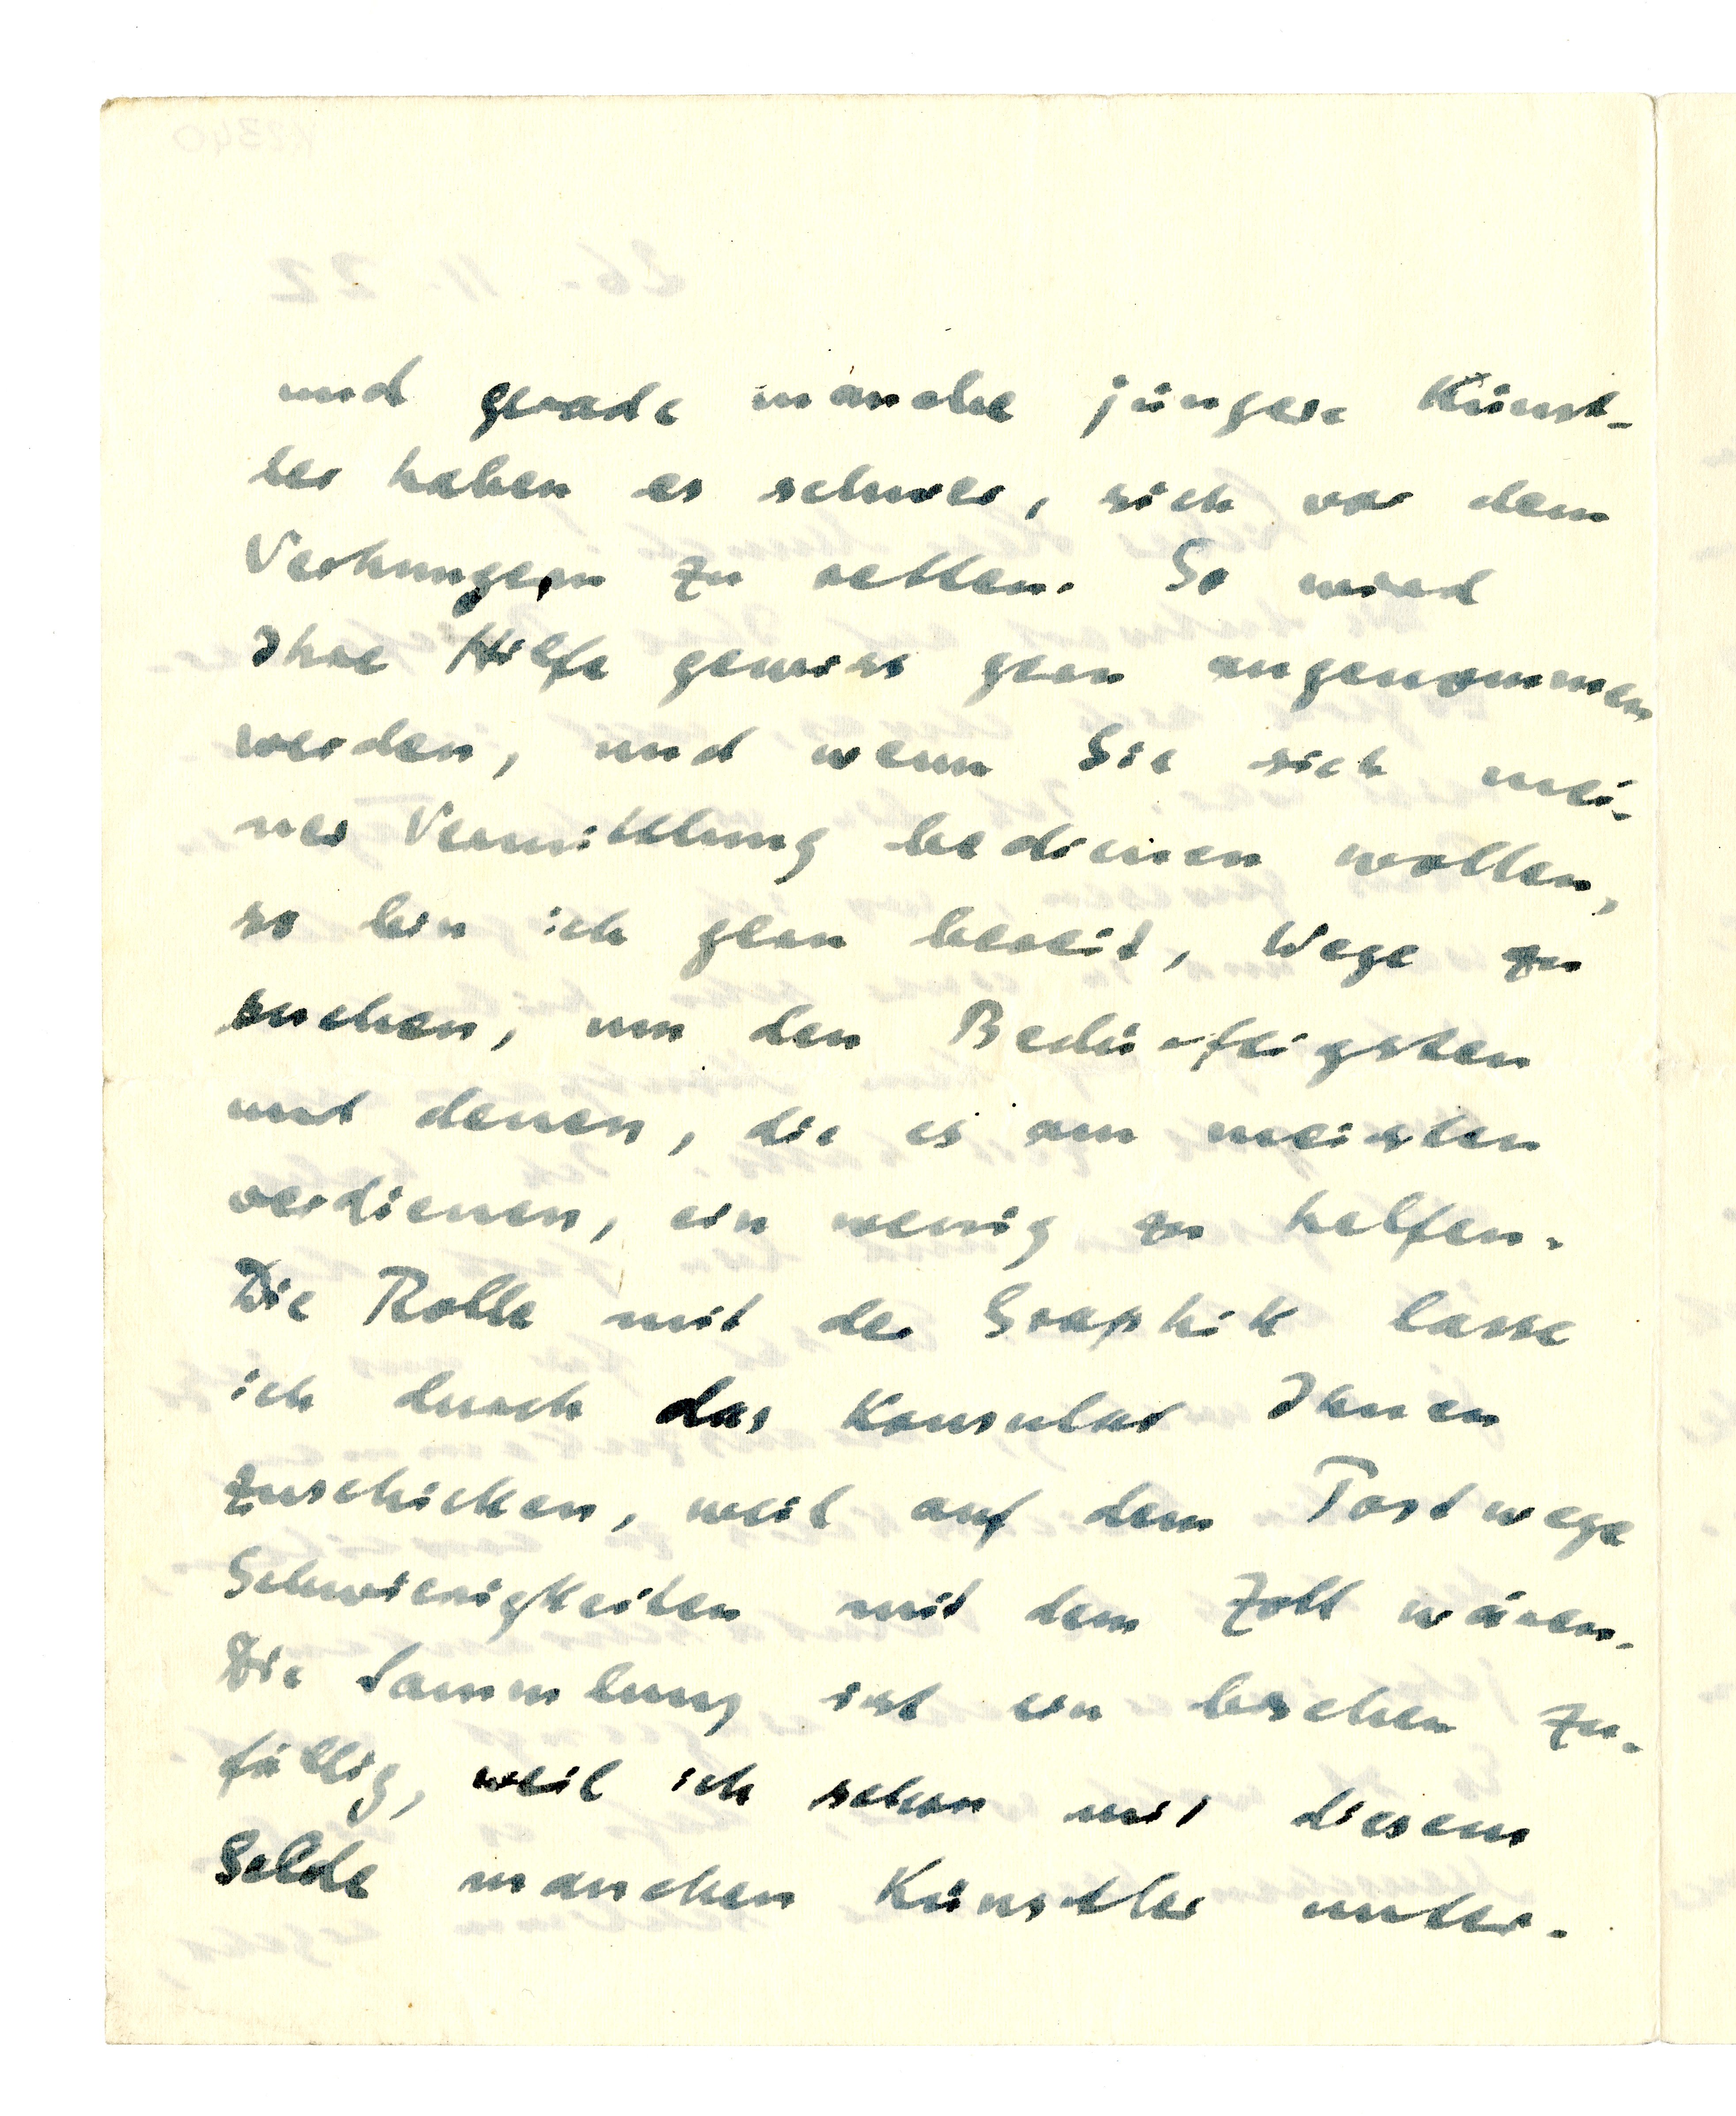 und gerade manche jüngere Künst-
ler haben es schwer, sich vor dem
Verhungern zu retten. So wird
Ihre Hilfe gewiss gern angenommen
werden, und wenn Sie sich mei-
ner Vermittlung bedienen wollen,
so bin ich gern bereit, Wege zu
suchen, um den Bedürftigsten
und denen, die es am meisten
verdienen, ein wenig zu helfen.
Die Rolle mit der Graphik lasse
ich durch das Konsulat Ihnen
zuschicken, weil auf dem Postwege
Schwierigkeiten mit dem Zoll wären.
Die Sammlung ist ein bischen zu-
fällig, weil ich schon mit diesem
Gelde manchen Künstler unter-